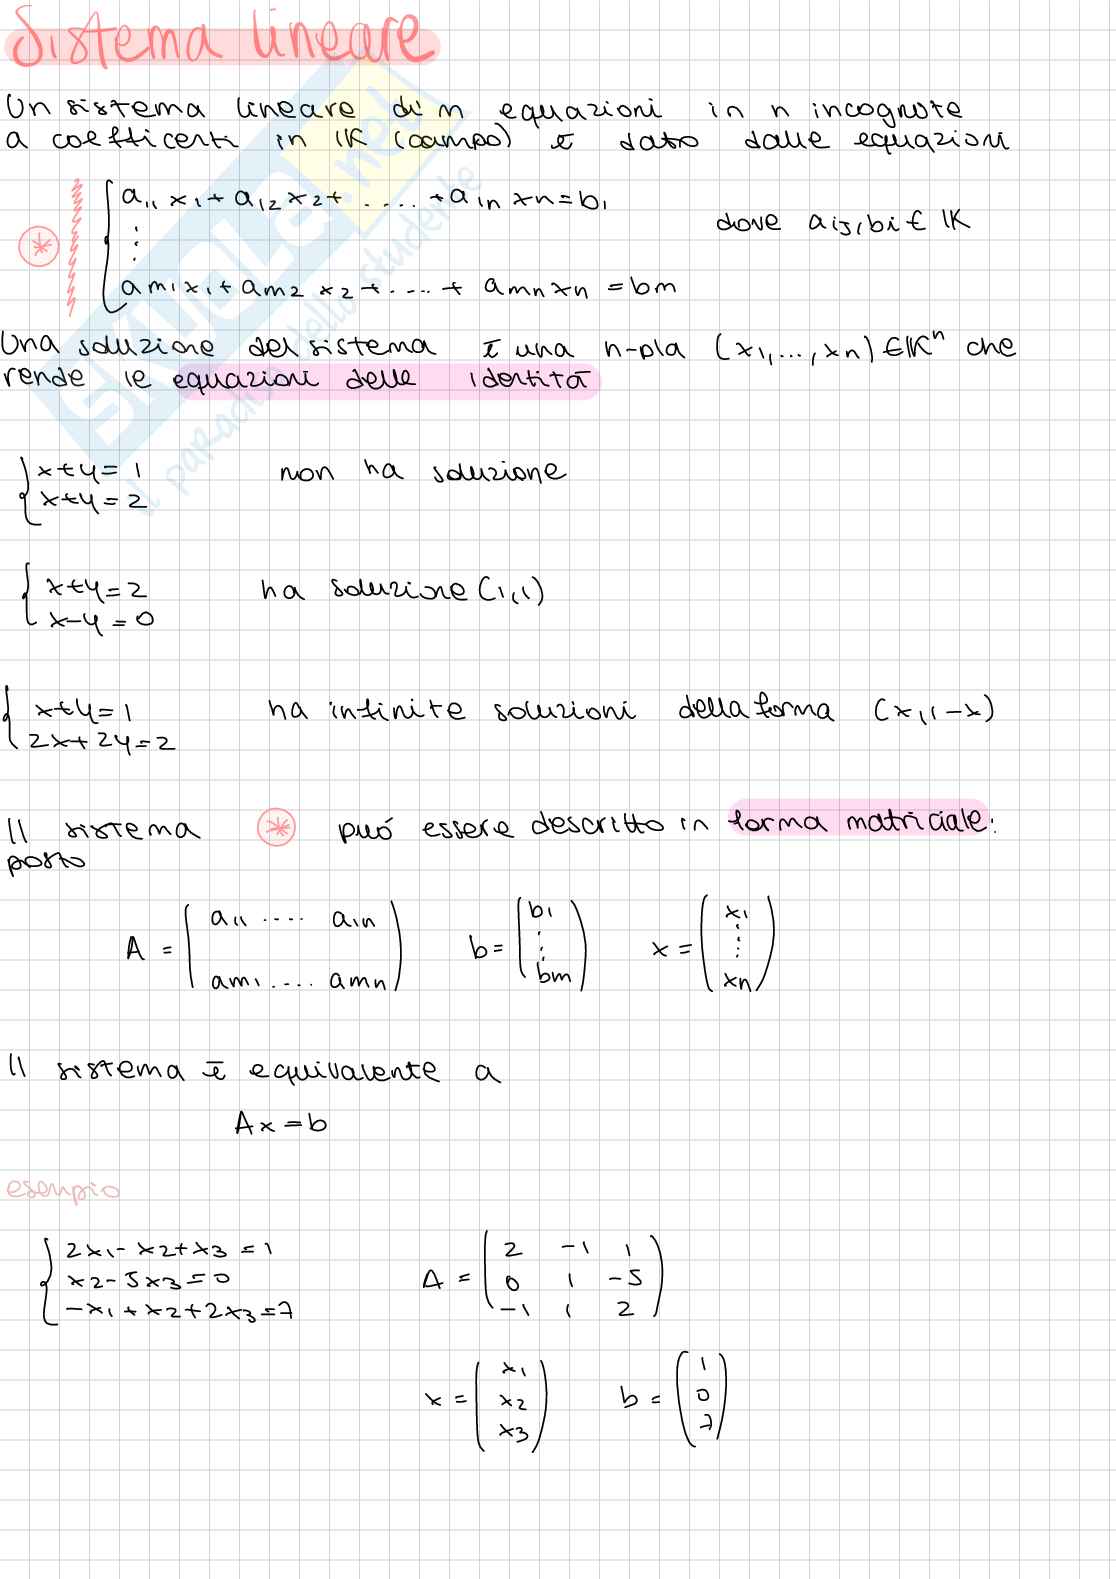 Sistema lineare
Un sistema lineare di m equazioni in n incognite
a coefficenti in K (campo) è dato dalle equazioni
a11 x1 + a12 x2 + ..... + a1n xn = b1
⋮
am1 x1 + am2 x2 + ..... + amn xn = bm
dove aij, bi ∈ K
Una soluzione del sistema è una n-pla (x1, ..., xn) ∈ K^n che
rende le equazioni delle identità
x+y=1
x+y=2
non ha soluzione
x+y=2
x-y=0
ha soluzione (1,1)
x+y=1
2x+2y=2
ha infinite soluzioni della forma (x, 1-x)
Il sistema * può essere descritto in forma matriciale:
posto
A = ( a11 .... a1n
am1 .... amn )
b = ( b1 ⋮ bm )
x = ( x1 ⋮ xn )
Il sistema è equivalente a
Ax = b
esempio
2x1 - x2 + x3 = 1
x2 - 5x3 = 0
-x1 + x2 + 2x3 = 7
A = ( 2 -1 1
0 1 -5
-1 1 2 )
x = ( x1
x2
x3 )
b = ( 1
0
7 )
SKUOLA.net
il paradiso dello studente